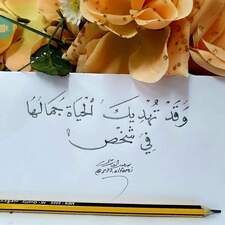 وَقَدْ تُهْدِيكَ الْحَيَاةُ جَمَالَهَا
فِي شَخْصٍ